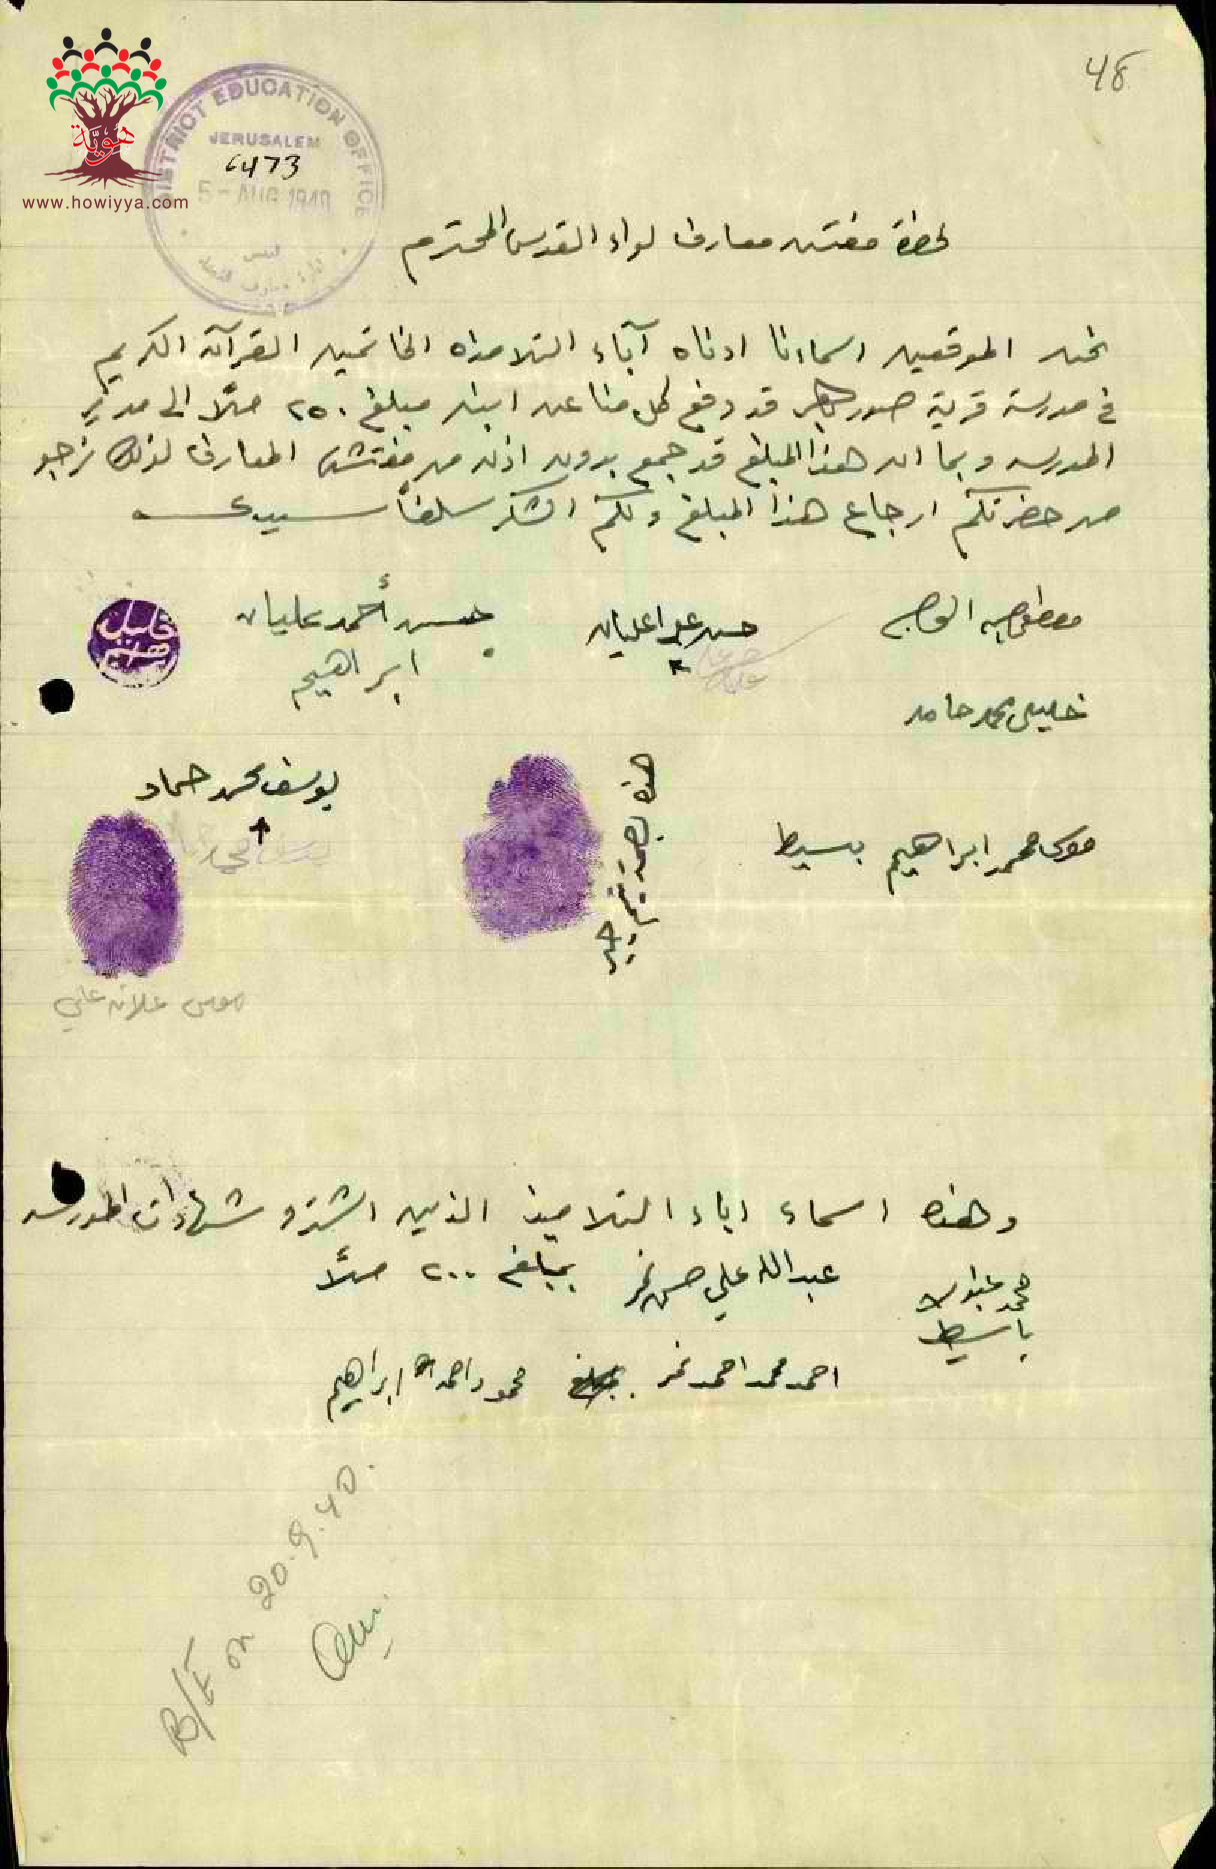 48
هوية
www.howiyya.com
DISTRICT EDUCATION OFFICE
JERUSALEM
6473
5 - AUG 1940
لحضرة مفتش معارف لواء القدس المحترم
نحن الموقعين اسماءنا ادناه آباء التلامذه الخاتمين القرآن الكريم
في مدرسة قرية صور باهر قد دفع كل منا عن ابنه مبلغ ٢٥٠ ملًا الى مدير
المدرسه وبما ان هذا المبلغ قد جمع بدون اذن من مفتش المعارف لذلك نرجو
من حضرتكم ارجاع هذا المبلغ ولكم الشكر سلفاً سيدي
حسن أحمد عليان
ابراهيم
خليل محمد حامد
يوسف محمد حماد
موسى محمد ابراهيم بسيط
هذه بصمة
موسى علان علي
وهذه اسماء اباء التلاميذ الذين اشترو شهادات المدرسه
عبد الله علي حسن نمر بمبلغ ٢٠٠ ملًا
محمد
باسيط
احمد محمد احمد نمر محمود احمد ابراهيم
B/F on 20.9.40.